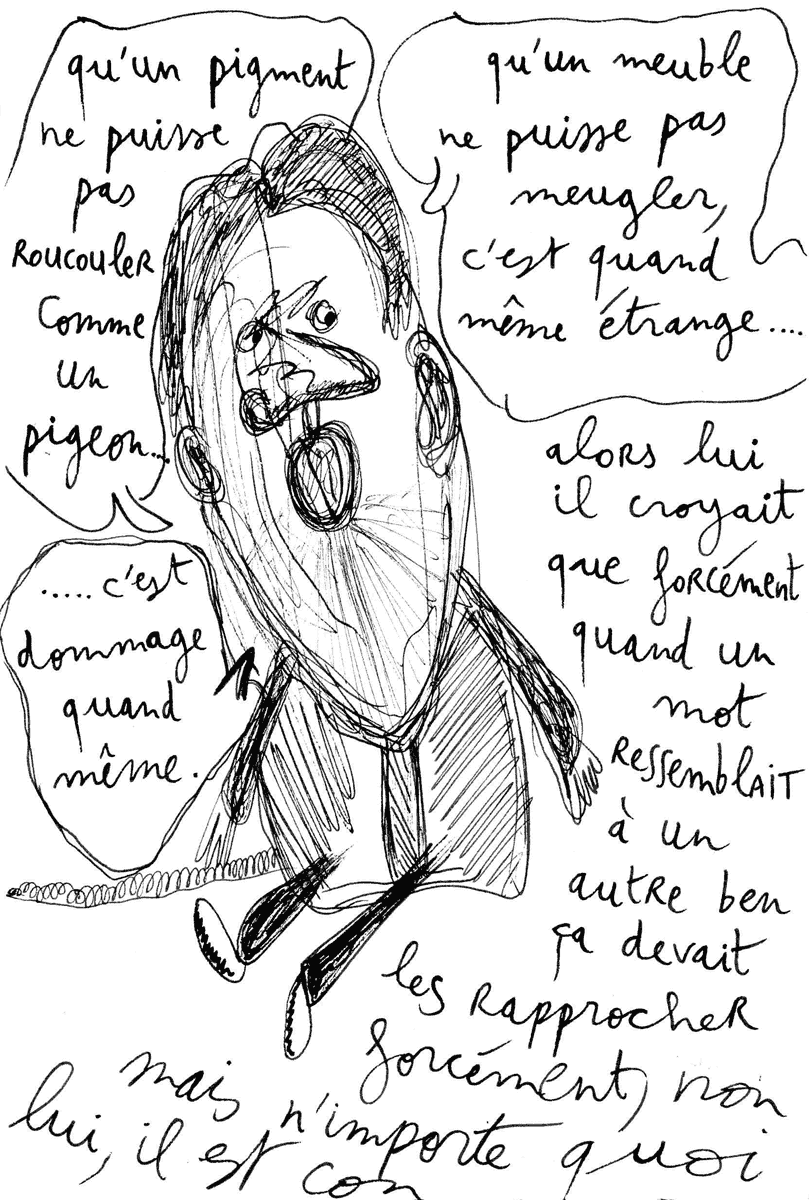 qu'un pigment
ne puisse
pas
ROUCOULER
comme
un
pigeon...
..... c'est
dommage
quand
même.
qu'un meuble
ne puisse pas
meugler,
c'est quand
même étrange....
alors lui
il croyait
que forcément
quand un
mot
RESSEMBLAIT
à un
autre ben
ça devait
les RapprocheR
forcément, non
mais n'importe quoi
lui, il est con